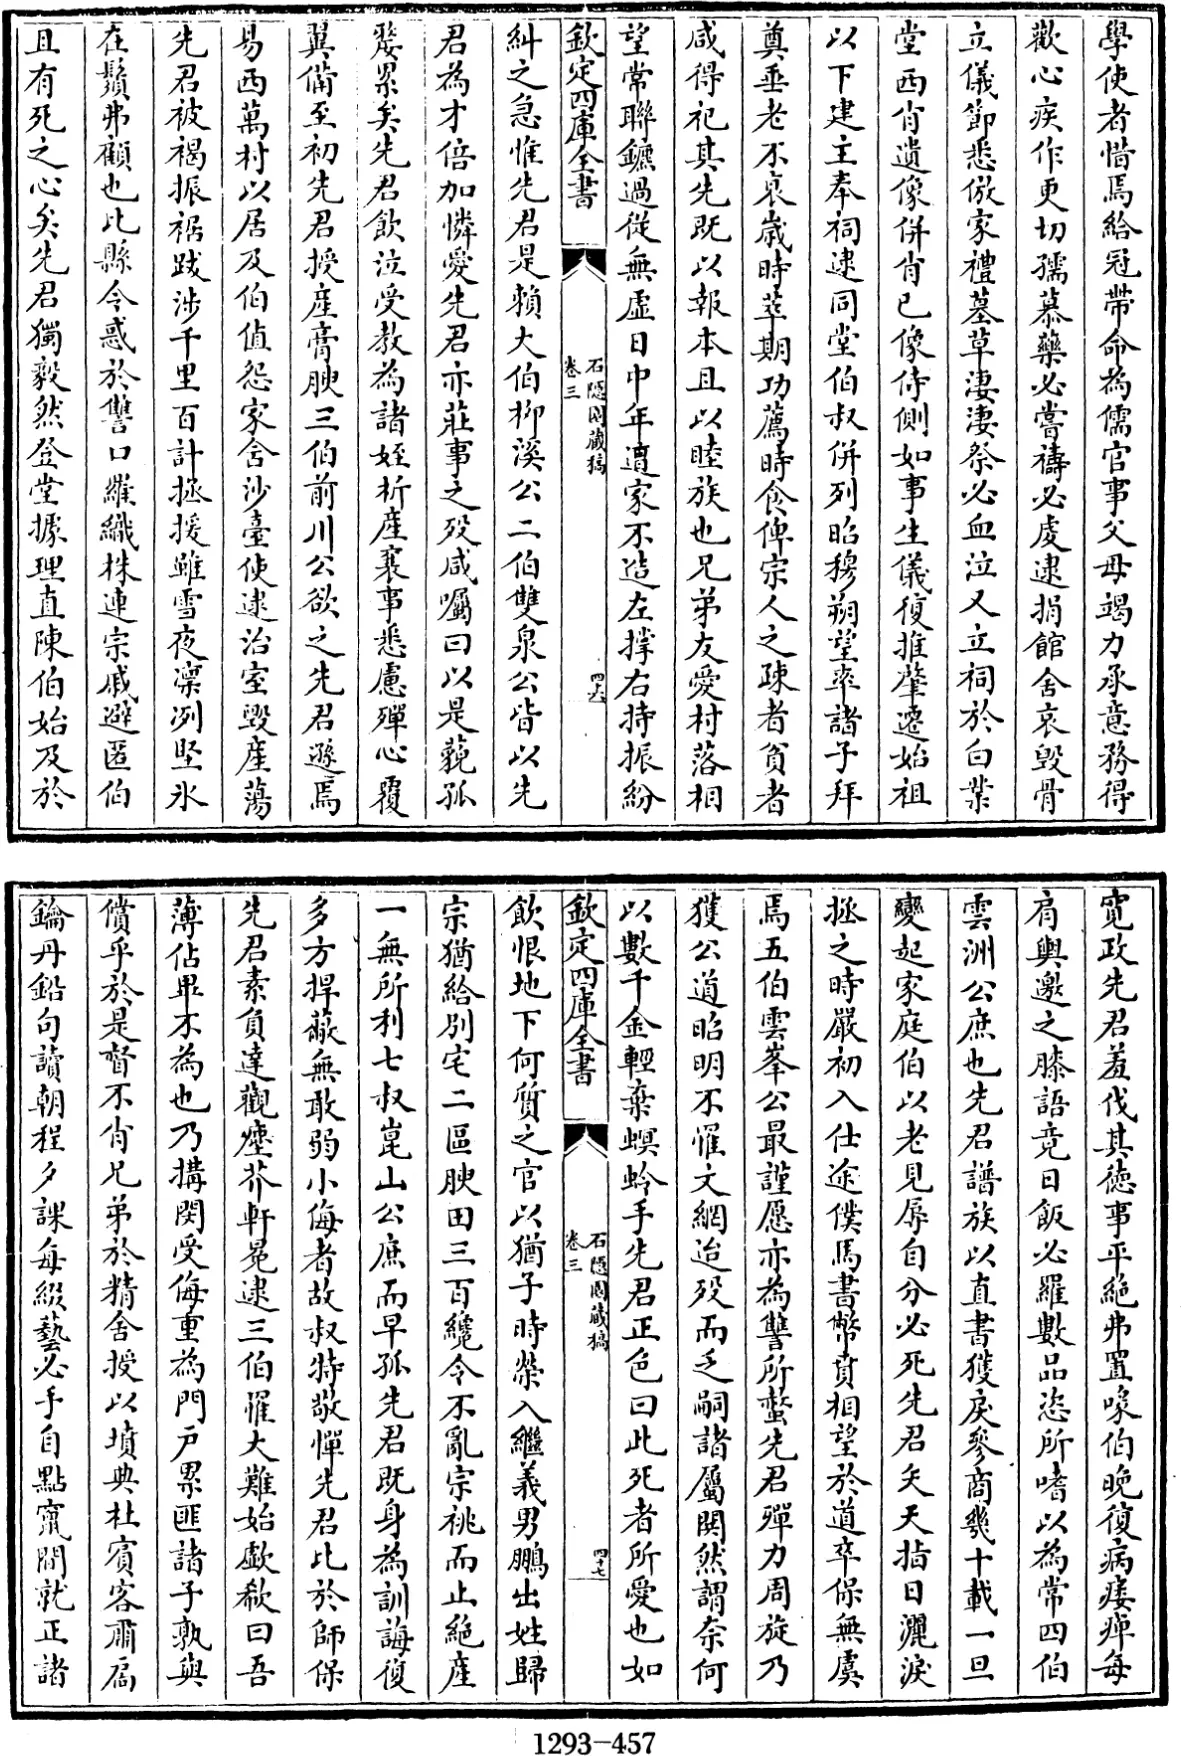 學使者惜焉給冠帶命為儒官事父母竭力承意務得
歡心疾作更切孺慕藥必嘗禱必虔逮捐館舍哀毀骨
立儀節悉倣家禮墓草淒淒祭必血泣又立祠於白業
堂西肖遺像併肖已像侍側如事生儀復推肇遷始祖
以下建主奉祠逮同堂伯叔併列昭穆朔望率諸子拜
奠垂老不衰歲時萃期功薦時食俾宗人之疎者貧者
咸得祀其先既以報本且以睦族也兄弟友愛村落相
望常聯鑣過從無虛日中年遭家不造左撑右持振紛
欽定四庫全書
石隱園藏稿
卷三
四十六
糾之急惟先君是賴大伯柳溪公二伯雙泉公皆以先
君為才倍加憐愛先君亦莊事之殁咸囑曰以是藐孤
嫠累矣先君飲泣受教為諸姪析產襄事悉慮殫心覆
翼備至初先君授產膏腴三伯前川公欲之先君遜焉
易西萬村以居及伯值怨家舍沙臺使逮治室毀產蕩
先君被褐振裾跋涉千里百計拯援雖雪夜凛冽堅氷
在鬚弗顧也比縣令惑於讐口羅織株連宗戚避匿伯
且有死之心矣先君獨毅然登堂據理直陳伯始及於
寛政先君羞伐其德事平絶弗置喙伯晚復病痿痺每
肩輿邀之膝語竟日飯必羅數品恣所嗜以為常四伯
雲洲公庶也先君譜族以直書獲戾參商幾十載一旦
變起家庭伯以老見辱自分必死先君矢天指日灑淚
拯之時嚴初入仕途僕馬書幣賁相望於道卒保無虞
焉五伯雲峯公最謹愿亦為讐所螫先君殫力周旋乃
獲公道昭明不罹文網迨殁而乏嗣諸屬鬨然謂奈何
以數千金輕棄螟蛉手先君正色曰此死者所愛也如
欽定四庫全書
石隱園藏稿
卷三
四十七
飲恨地下何質之官以猶子時榮入繼義男鵬出姓歸
宗猶給別宅二區腴田三百纔令不亂宗祧而止絶產
一無所利七叔崑山公庶而早孤先君既身為訓誨復
多方捍蔽無敢弱小侮者故叔特敬憚先君比於師保
先君素負達觀塵芥軒冕逮三伯罹大難始歔欷曰吾
薄佔畢不為也乃搆閔受侮重為門戸累匪諸子孰與
償乎於是督不肖兄弟於精舍授以墳典杜賓客肅扃
鑰丹鉛句讀朝程夕課每綴藝必手自點竄間就正諸
1293-457